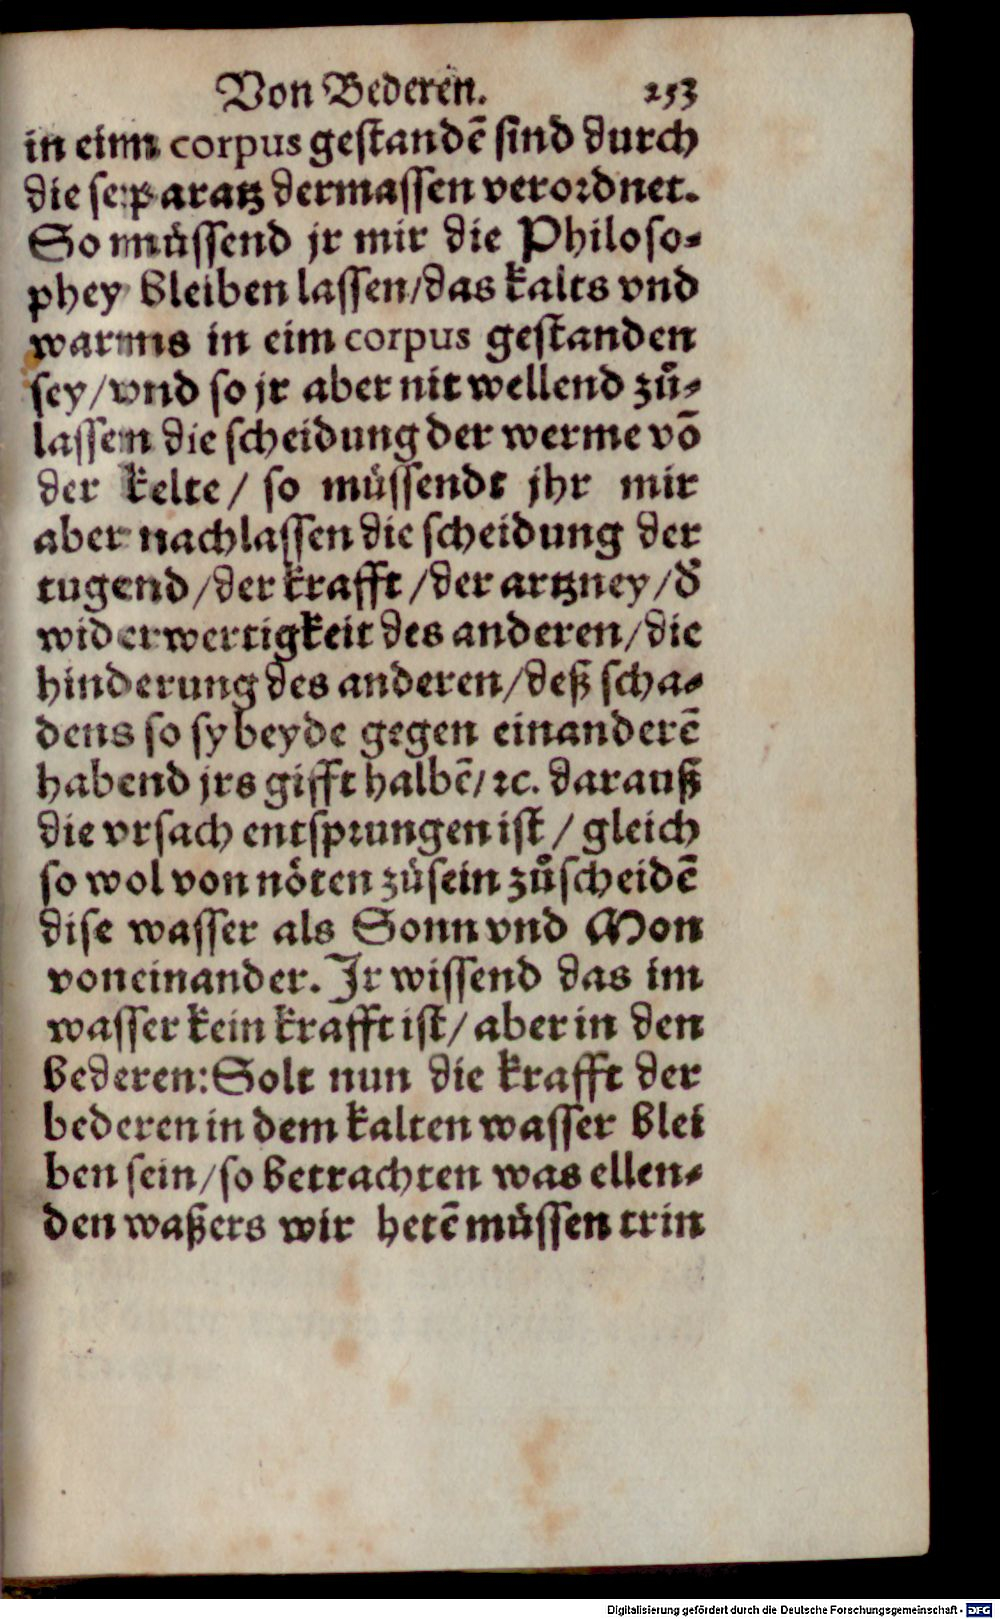 Von Bederen. 253
in eim corpus geſtandē ſind durch
die ſeparatz dermaſſen verordnet.
So müſſend jr mir die Philoſo⸗
phey bleiben laſſen/das kalts vnd
warms in eim corpus geſtanden
ſey/vnd ſo jr aber nit wellend zů⸗
laſſen die ſcheidung der werme vō
der kelte/ ſo müſſendt jhr mir
aber nachlaſſen die ſcheidung der
tugend/der krafft/der artzney/d̄
widerwertigkeit des anderen/die
hinderung des anderen/deß ſcha⸗
dens ſo ſy beyde gegen einanderē
habend jrs gifft halbē/ꝛc. darauß
die vrſach entſprungen iſt/ gleich
ſo wol von nöten zůſein zůſcheidē
diſe waſſer als Sonn vnd Mon
voneinander. Jr wiſſend das im
waſſer kein krafft iſt/ aber in den
bederen: Solt nun die krafft der
bederen in dem kalten waſſer blei
ben ſein/ſo betrachten was ellen⸗
den waßers wir hetē müſſen trin
Digitalisierung gefördert durch die Deutsche Forschungsgemeinschaft - DFG